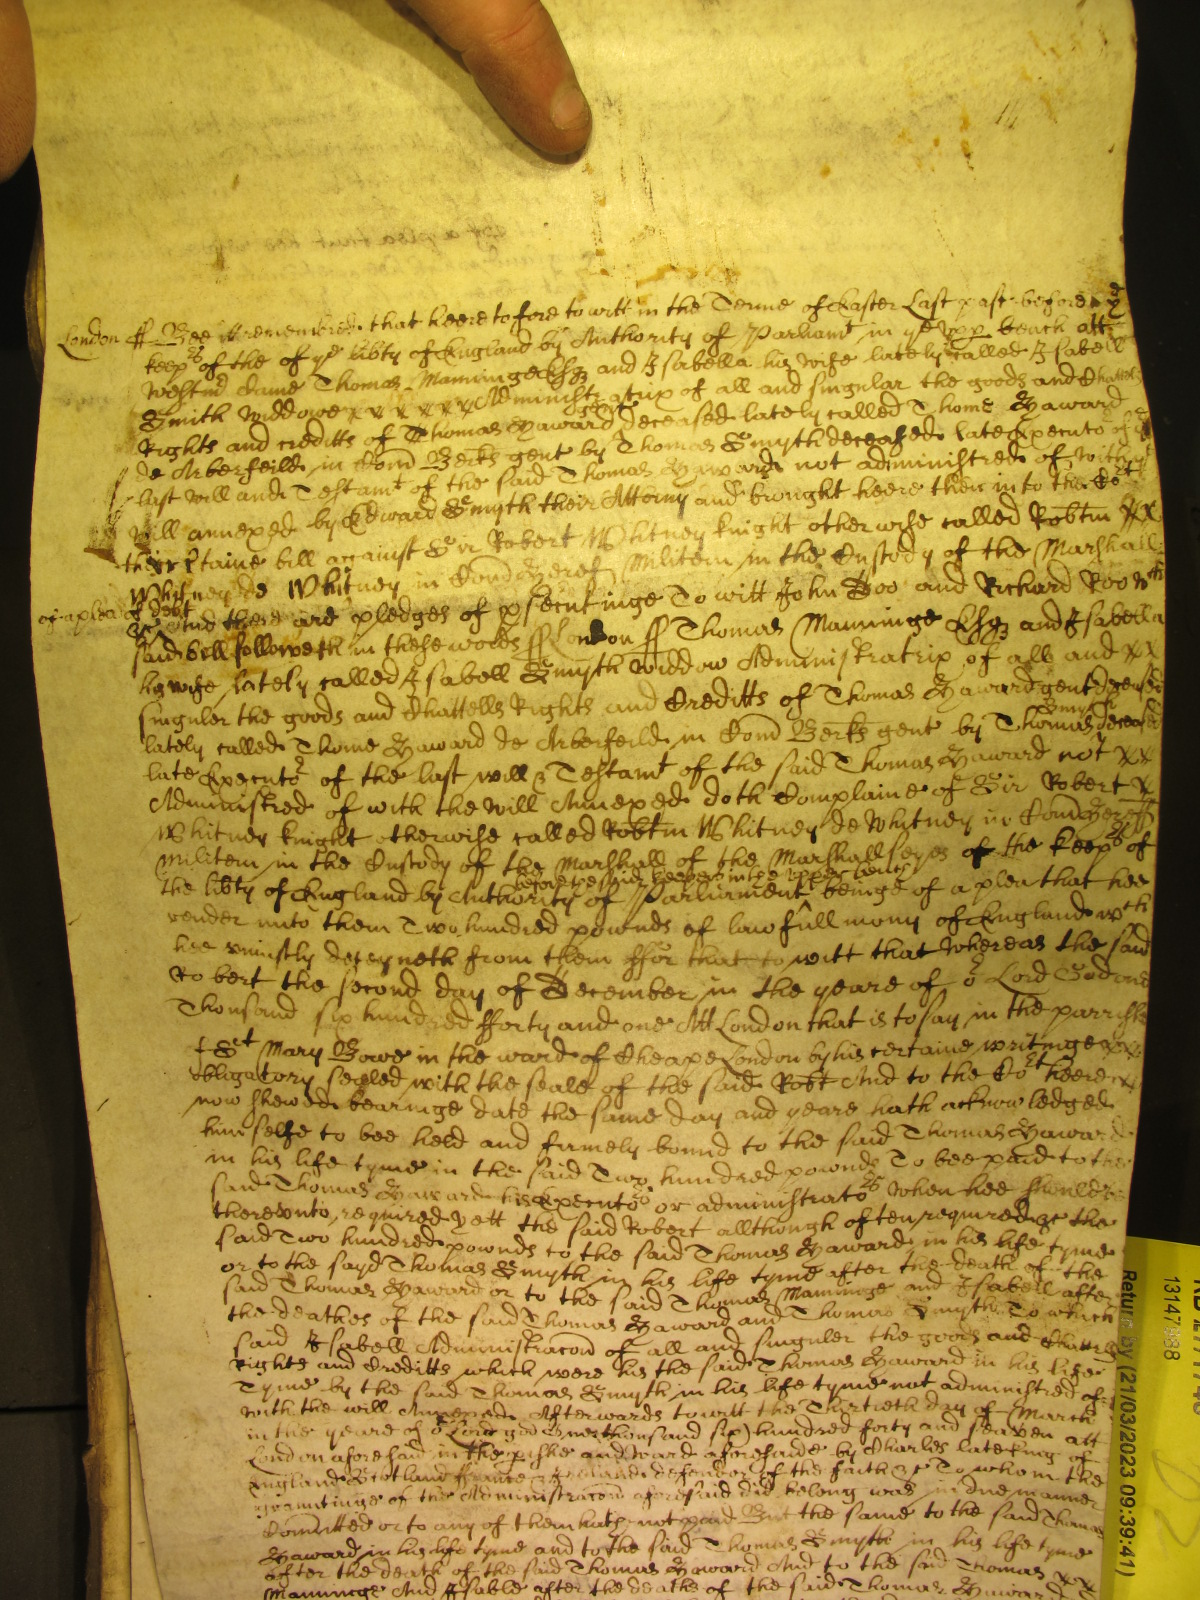 14
London ss Bee itt remembred that heeretofore to witt in the Terme of Easter Last past before ye
keep.rs of the of ye lib.ty of England by Authority of Parliam.t in ye upp. bench att
Westm.r came Thomas Manninge Esq and Isabella his wife lately called Isabell
Smith Widdowe x x x x x x Administratrip of all and singular the goods and Chattells
gent
Rights and creditts of Thomas Hayward deceased lately called Thome Hayward
de Arberfeild in Com Berks gent by Thomas Smyth deceased late Executo.r of ye
last will and Testam.t of the said Thomas Hayward not administred of with ye
will annexed by Edward Smyth their Attorny and brought heere then into the Co.rt
their certaine bill against Sir Robert Whitney knight otherwise called Robtm xx
Whitney de Whitney in Com Heref Militem in the Custody of the Marshall
of a plea of debt
&c And there are pledges of psecutinge To witt John Doo and Richard Roo w.ch
said bill followeth in these words ss London ss Thomas Manninge Esq and Isabella
his wife lately called Isabell Smyth widdow Administratrip of all and xx
singuler the goods and Chattells Rights and Creditts of Thomas Hayward gent deceased
Smyth
lately called Thome Hayward de Arberfeild in Com Berks gent by Thomas deceased
late Executo.r of the last will & Testam.t of the said Thomas Hayward not xx
Administred of with the will Annexed doth Complaine of Sir Robert x
Whitney knight otherwise called Robtm Whitney de Whitney in Com Heref
Militem in the Custody of the Marshall of the Marshallseyes of the keep.rs of
before the said keepers in the upper bench
the lib.ty of England by Authority of Parliament beinge of a plea that hee
render unto them Two hundred pownds of lawfull mony of England w.ch
hee uniustly deteyneth from them ffor that to witt that Whereas the said
Robert the second day of December in the yeare of o.r Lord God one
Thousand six hundred fforty and one Att London that is to say in the parrish
of S.t Mary Bowe in the ward of Cheape London by his certaine writinge xx
obligatory sealed with the seale of the said Robt And to the Co.rt heere x
now shewed bearinge date the same day and yeare hath acknowledged
himselfe to bee held and firmely bound to the said Thomas Hayward
in his life tyme in the said Two hundred pownds To bee paid to the
said Thomas Hayward his Executo.rs or administrato.rs When hee should be
thereunto required yett the said Robert allthough often required &c the
said Two hundred pownds to the said Thomas Hayward in his life tyme
or to the sayd Thomas Smyth in his life tyme after the death of the
said Thomas Hayward or to the said Thomas Manninge and Isabell after
the deathes of the said Thomas Hayward and Thomas Smyth To which
said Isabell Administracon of all and singuler the goods and Chattells
Rights and Creditts which were his the said Thomas Hayward in his life
Tyme by the said Thomas Smyth in his life tyme not administred of
with the will Annexed Afterwards to witt the Thirtieth day of March
in the yeare of o.r Lord god One thousand six hundred forty and seaven att
London aforesaid in the pishe and Ward aforesaid by Charles late King of
England Scotland ffrance & Ireland defendor of the faith &c To whom the
grauntinge of the Administracon aforesaid did belong was in due manner
Comitted or to any of them hath not paid But the same to the said Thomas
Hayward in his life tyme and to the said Thomas Smyth in his life tyme
after the death of the said Thomas Hayward And to the said Thomas xx
Manninge And Isable after the deaths of the said Thomas Hayward
Return by (21/03/2023 09:39:41)